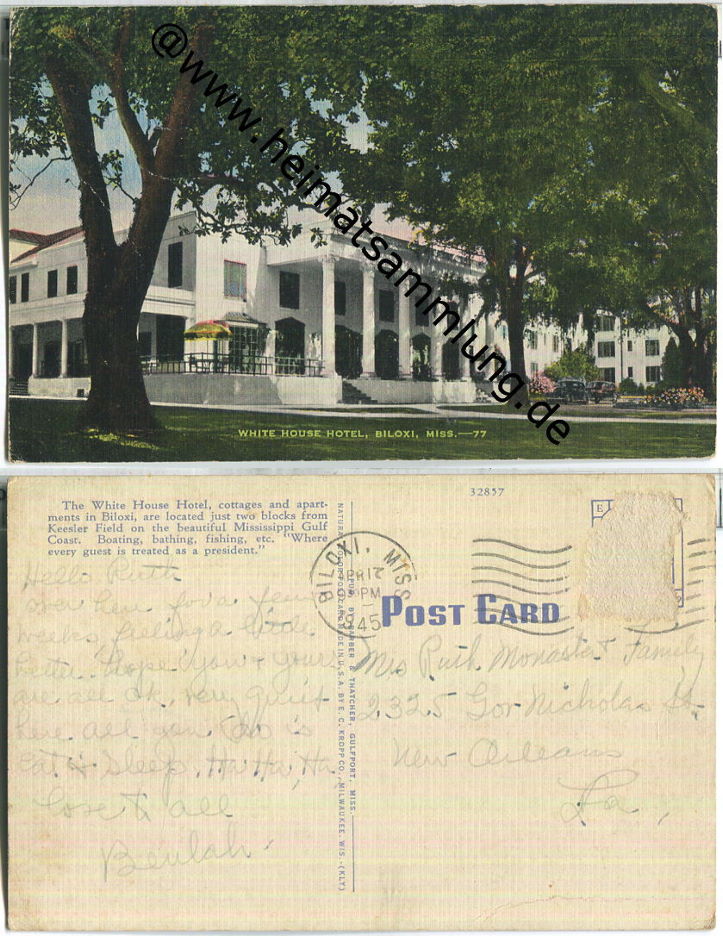 @www.heimatsammlung.de
WHITE HOUSE HOTEL, BILOXI, MISS.—77
32857
The White House Hotel, cottages and apart-
ments in Biloxi, are located just two blocks from
Keesler Field on the beautiful Mississippi Gulf
Coast. Boating, bathing, fishing, etc. "Where
every guest is treated as a president."
BILOXI, MISS
APR 17
PM
1945
POST CARD
Hello Ruth
over here for a few
weeks, feeling a little
better. Hope you & yours
are all ok, very quiet
here all you do is
eat & sleep, Ha Ha, Ha
Love to all
Beulah.
Mrs Ruth Monastat Family
2325 Gov Nicholas St.
New Orleans
La,
PUB. BY BARBER & THATCHER, GULFPORT, MISS.
MADE IN U.S.A. BY E. C. KROPP CO., MILWAUKEE, WIS.-(KLY)